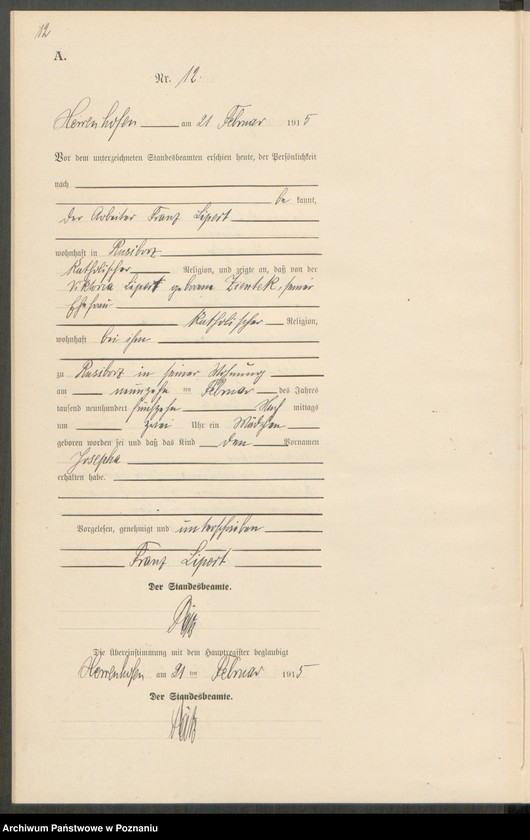 12
A.
Nr. 12.
Herrenhofen am 21 Februar 1915
Vor dem unterzeichneten Standesbeamten erschien heute, der Persönlichkeit
nach
be kannt,
der Arbeiter Franz Lipert
wohnhaft in Rusiborz
katholischer Religion, und zeigte an, daß von der
Viktoria Lipert geborene Zientek, seiner
Ehefrau
katholischer Religion,
wohnhaft bei ihm
zu Rusiborz in seiner Wohnung
am neunzehn ten Februar des Jahres
tausend neunhundert fünfzehn Nach mittags
um zwei Uhr ein Mädchen
geboren worden sei und daß das Kind den Vornamen
Josepha
erhalten habe.
Vorgelesen, genehmigt und unterschrieben
Franz Lipert
Der Standesbeamte.
Die Übereinstimmung mit dem Hauptregister beglaubigt
Herrenhofen am 21 ten Februar 1915
Der Standesbeamte.
Archiwum Państwowe w Poznaniu